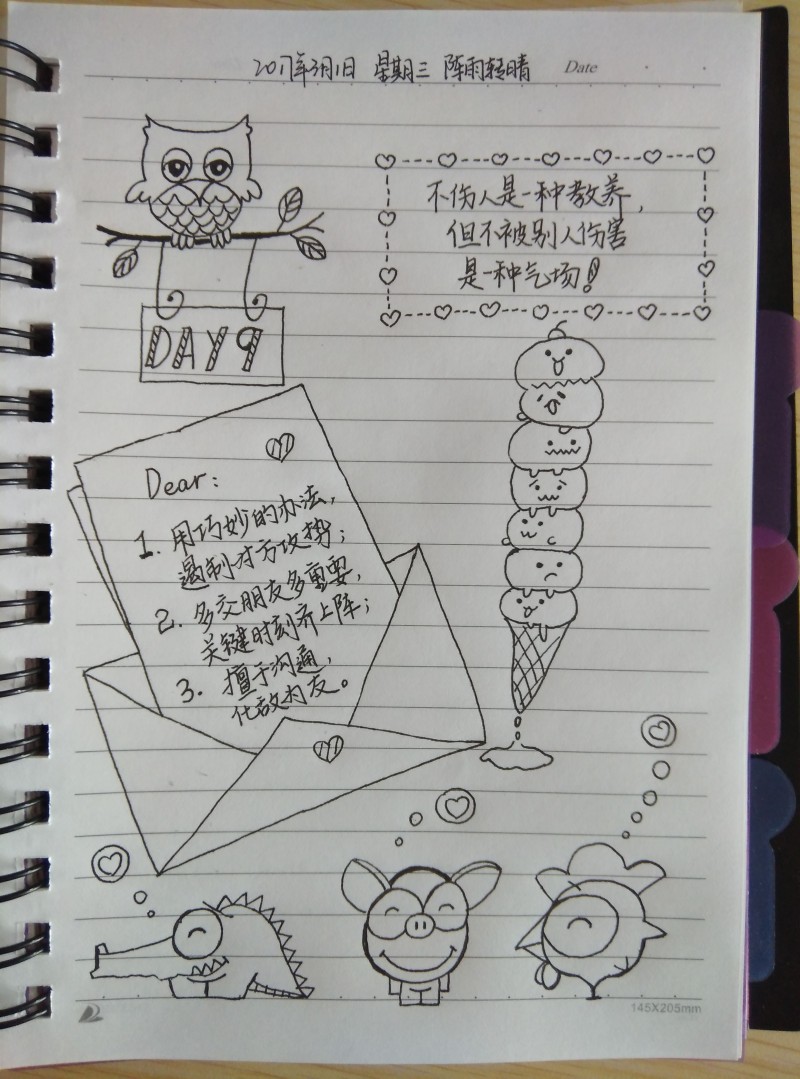 2017年3月1日 星期三 阵雨转晴 Date
不伤人是一种教养，
但不被别人伤害
是一种气场！
DAY9
Dear：
1. 用巧妙的办法，
遏制对方攻势；
2. 多交朋友多重要，
关键时刻齐上阵；
3. 擅于沟通，
化敌为友。
145X205mm